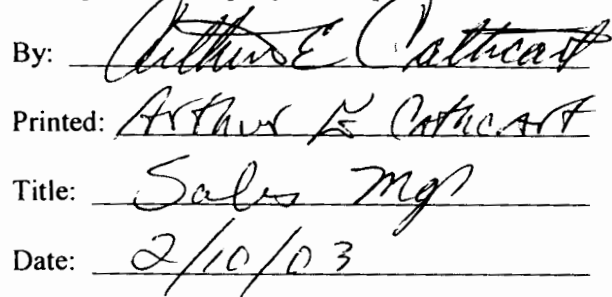 By: Arthur E Cathcart
Printed: Arthur E Cathcart
Title: Sales Mgr
Date: 2/10/03